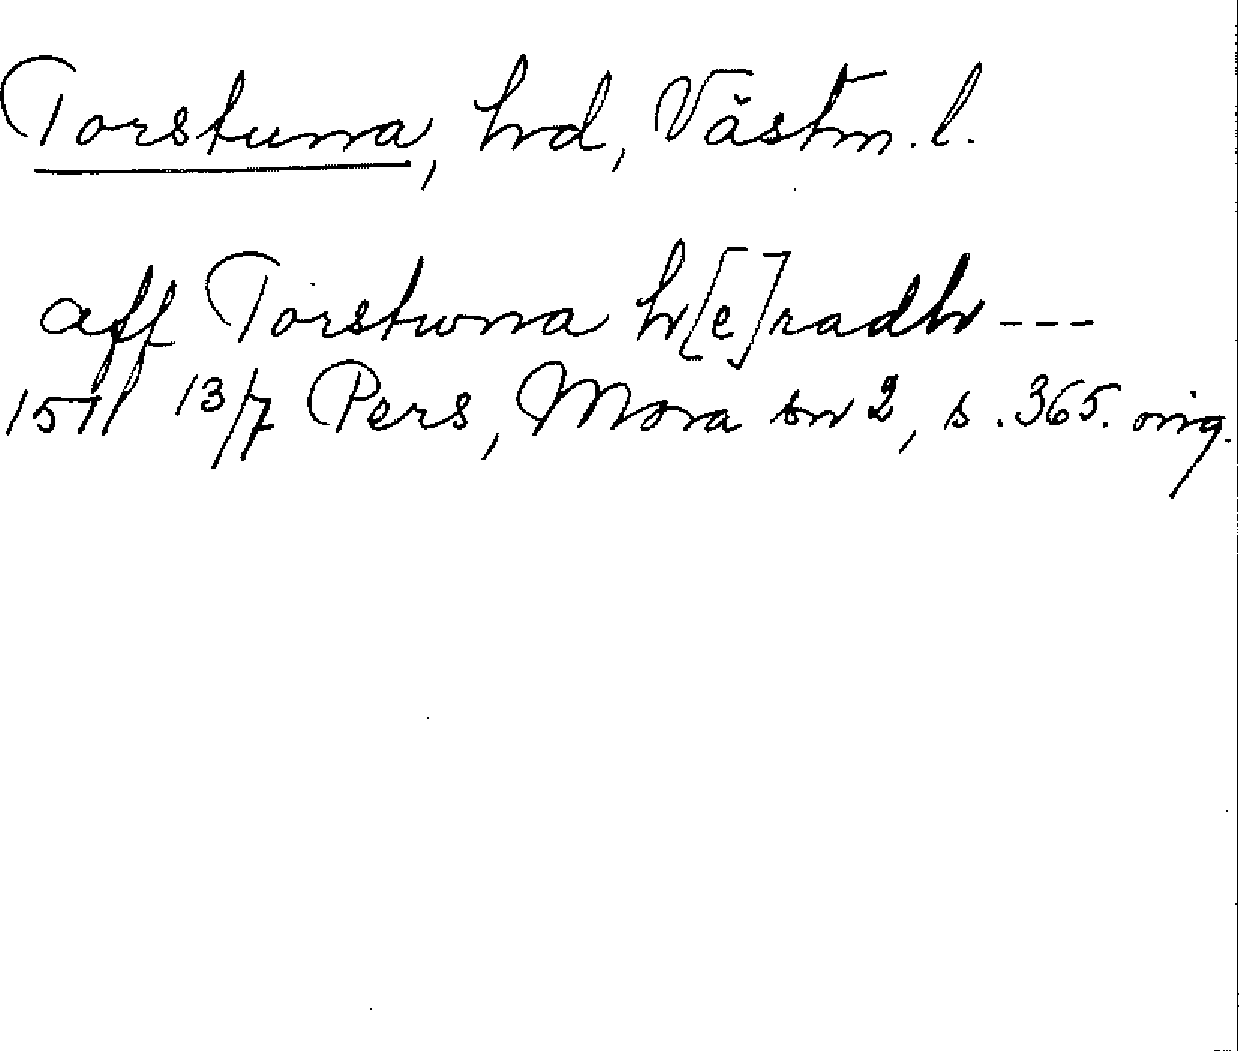 Torstuna, hd, Västm. l.
aff Torstwna h[e]radh ---
1571 13/7 Pers, Mora sn 2, s. 365. orig.